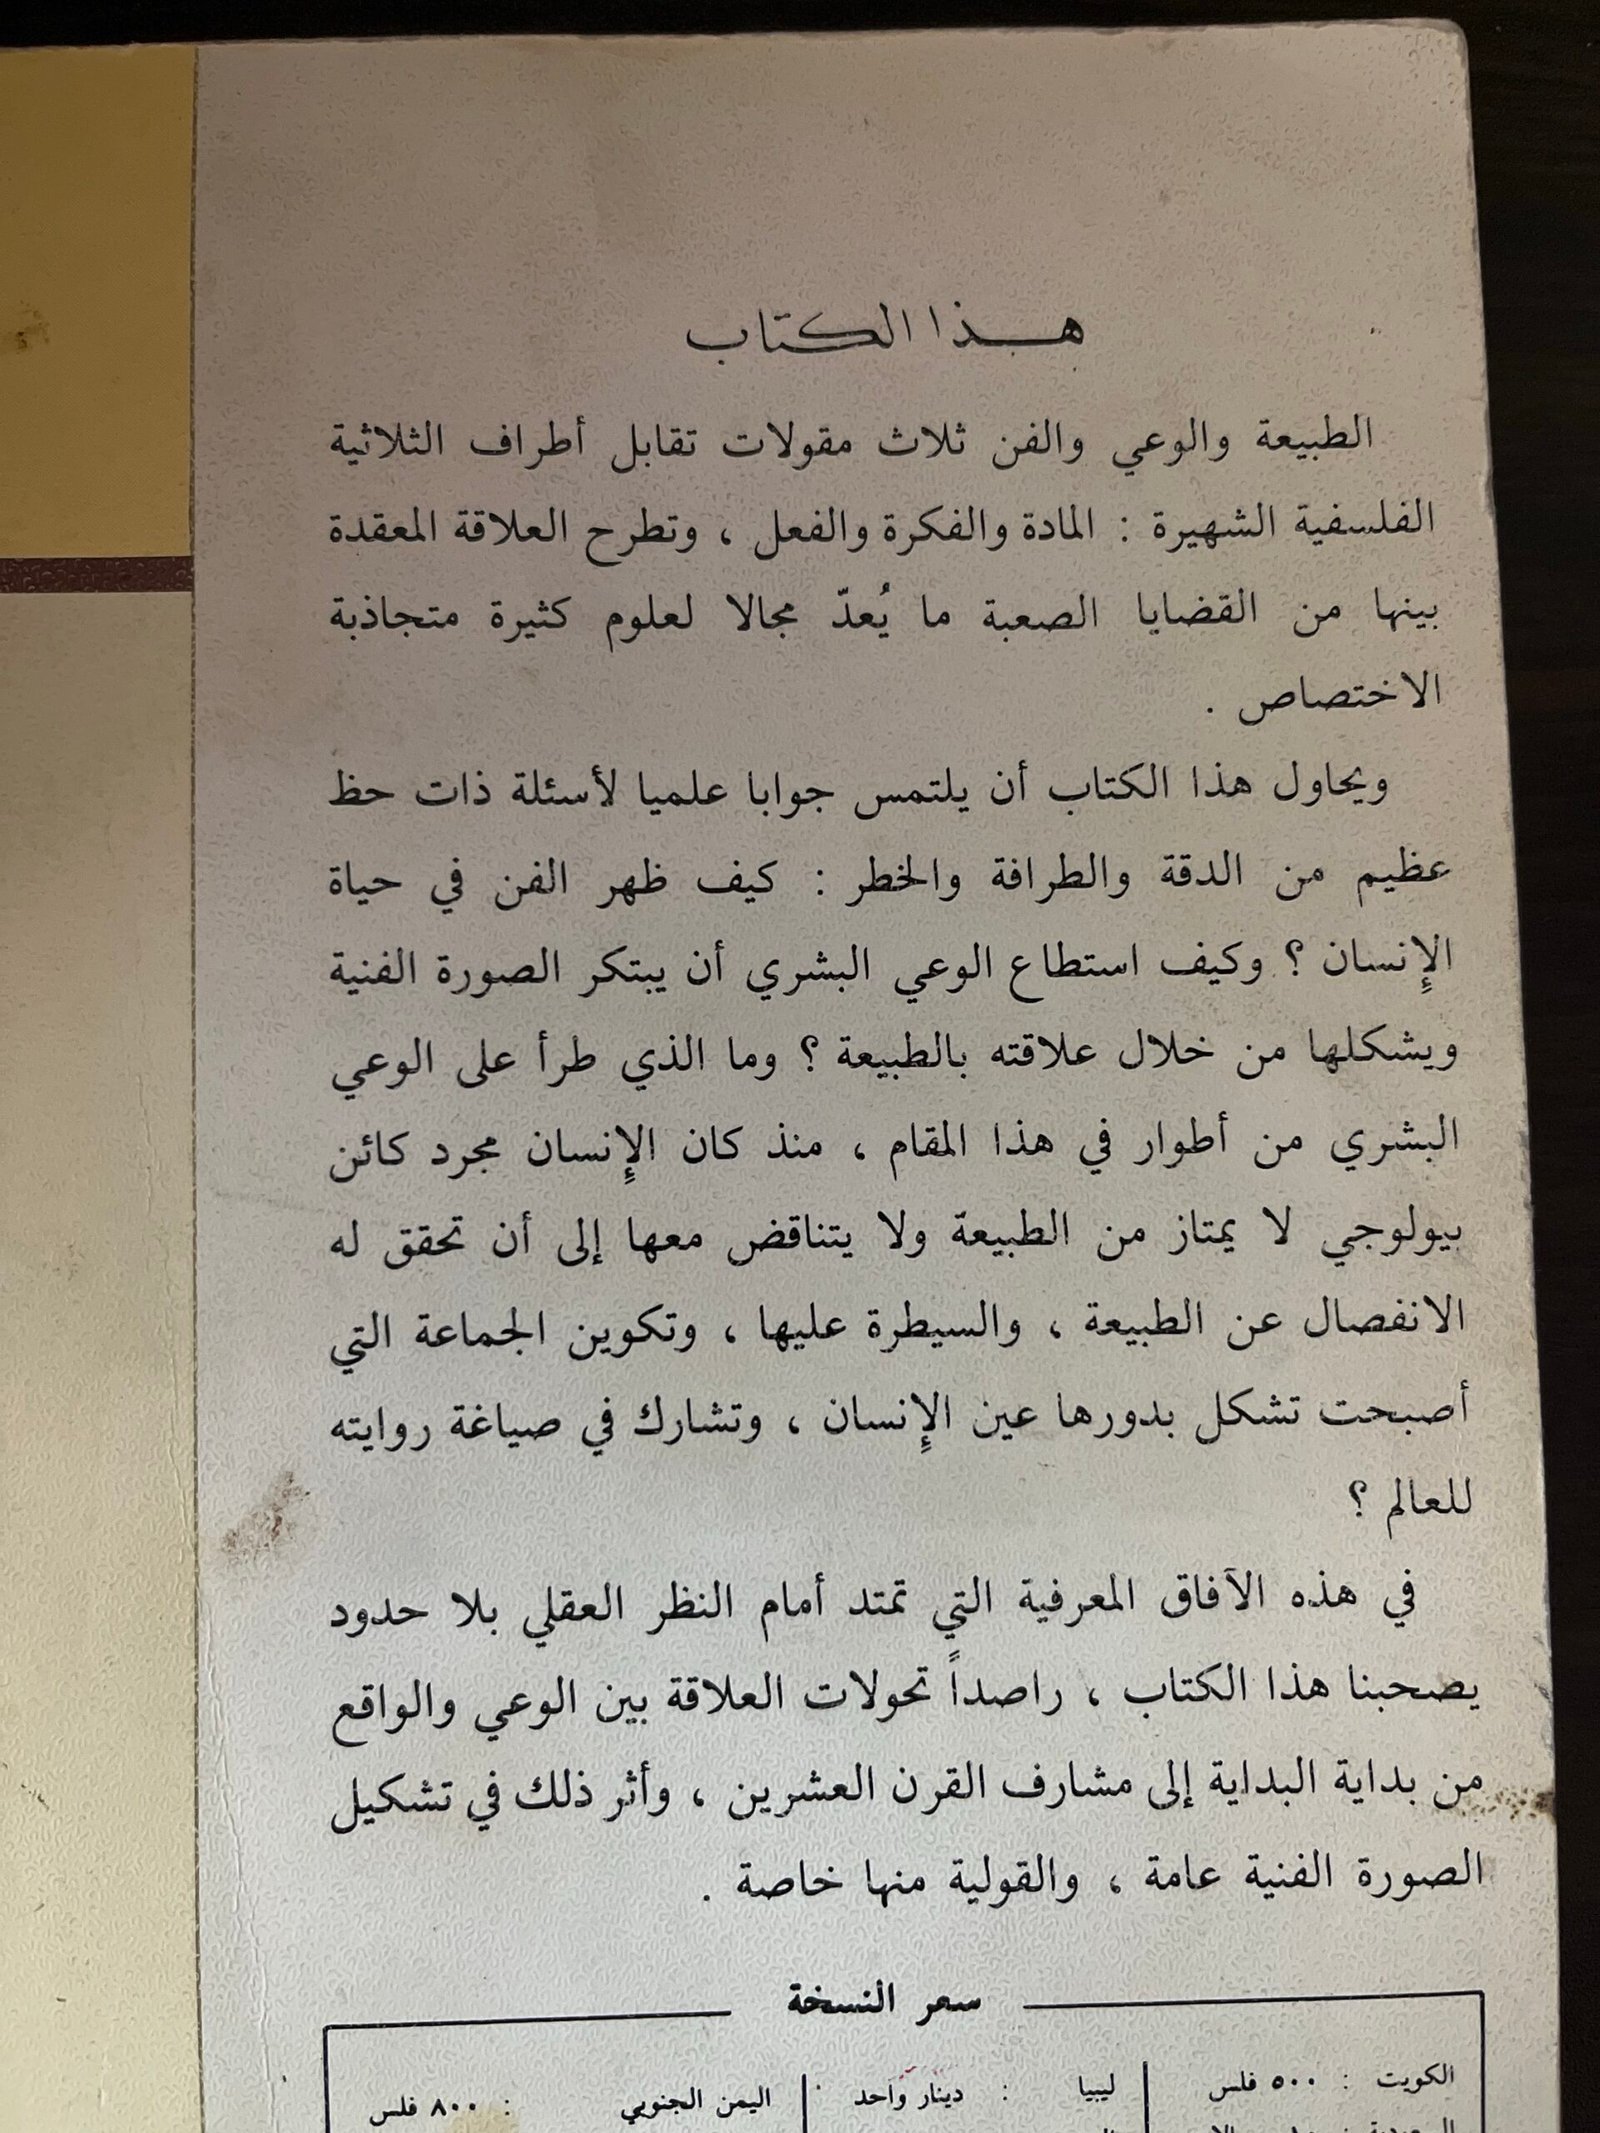 هذا الكتاب
الطبيعة والوعي والفن ثلاث مقولات تقابل أطراف الثلاثية
الفلسفية الشهيرة : المادة والفكرة والفعل ، وتطرح العلاقة المعقدة
بينها من القضايا الصعبة ما يُعدّ مجالا لعلوم كثيرة متجاذبة
الاختصاص .
ويحاول هذا الكتاب أن يلتمس جوابا علميا لأسئلة ذات حظ
عظيم من الدقة والطرافة والخطر : كيف ظهر الفن في حياة
الإِنسان ؟ وكيف استطاع الوعي البشري أن يبتكر الصورة الفنية
ويشكلها من خلال علاقته بالطبيعة ؟ وما الذي طرأ على الوعي
البشري من أطوار في هذا المقام ، منذ كان الإِنسان مجرد كائن
بيولوجي لا يمتاز من الطبيعة ولا يتناقض معها إلى أن تحقق له
الانفصال عن الطبيعة ، والسيطرة عليها ، وتكوين الجماعة التي
أصبحت تشكل بدورها عين الإِنسان ، وتشارك في صياغة روايته
للعالم ؟
في هذه الآفاق المعرفية التي تمتد أمام النظر العقلي بلا حدود
يصحبنا هذا الكتاب ، راصداً تحولات العلاقة بين الوعي والواقع
من بداية البداية إلى مشارف القرن العشرين ، وأثر ذلك في تشكيل
الصورة الفنية عامة ، والقولية منها خاصة .
سعر النسخة
الكويت : ٥٠٠ فلس
ليبيا : دينار واحد
اليمن الجنوبي : ٨٠٠ فلس